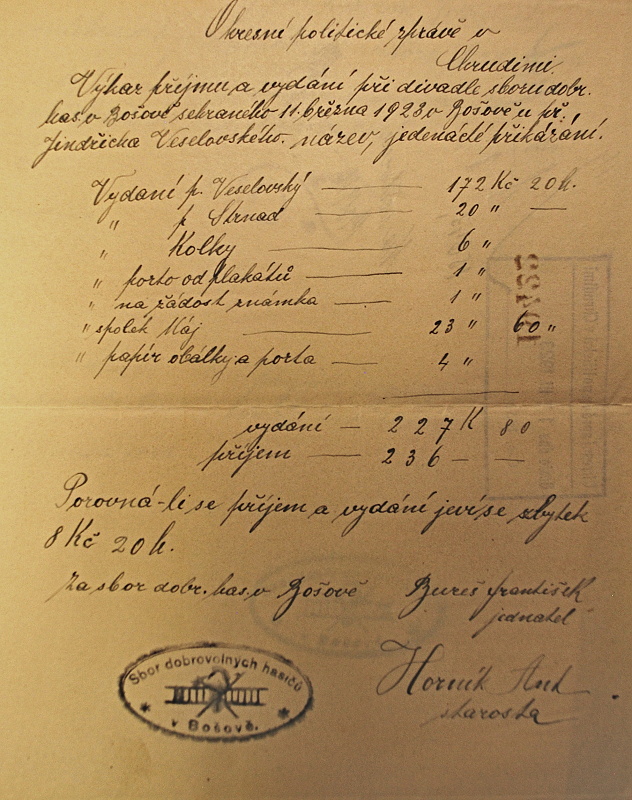 Okresní politické zprávě v
Chrudimi.
Výkaz příjmu a vydání při divadle sboru dobr.
has. v Bošově sehraného 11. března 1923 v Bošově u př.
Jindřicha Veselovského. název, jedenácté přikázání.
Vydaní p. Veselovský — 172 Kč 20 h.
" p. Strnad — 20 " —
" Kolky — 6 "
" porto od plakátů — 1 "
" na žádost známka — 1 "
" spolek Máj — 23 " 60 "
" papír obálky a porta — 4 "
vydání — 227 K 80
příjem — 236 — —
Porovná-li se příjem a vydání jeví se zbytek
8 Kč 20 h.
Za sbor dobr. has. v Bošově Bureš František
jednatel
Sbor dobrovolných hasičů
v Bošově.
Horník Ant
starosta